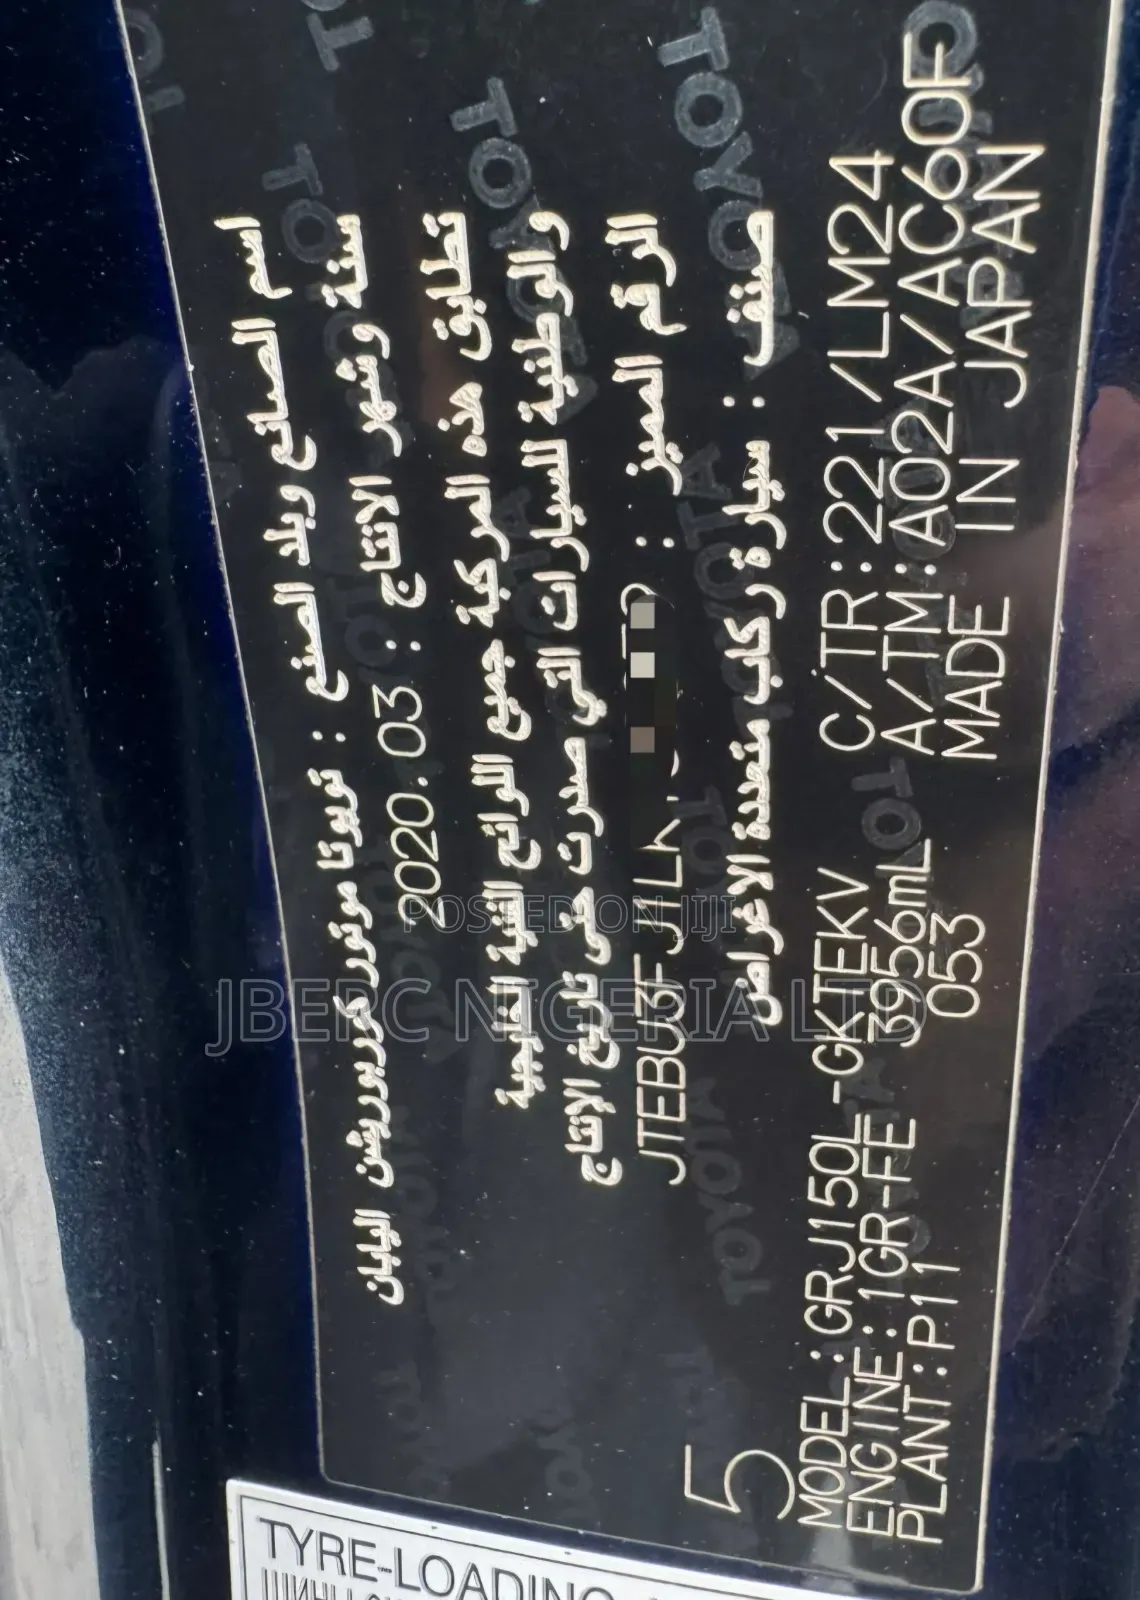 اسم الصانع وبلد الصنع : تويوتا موتور كوربوريشن اليابان
سنة وشهر الانتاج : 2020.03
تطابق هذه المركبة جميع اللوائح الفنية الخليجية
والوطنية للسيارات التي صدرت حتى تاريخ الإنتاج
الرقم المميز :
JTEBU3FJ1LK
صنف : سيارة ركاب متعددة الاغراض
5
MODEL:GRJ150L-GKTEKV C/TR:221/LM24
ENGINE:1GR-FE 3956mL A/TM:A02A/AC60F
PLANT:P11 053 MADE IN JAPAN
TYRE-LOADING
POSTED ON JIJI
JBERC NIGERIA LTD